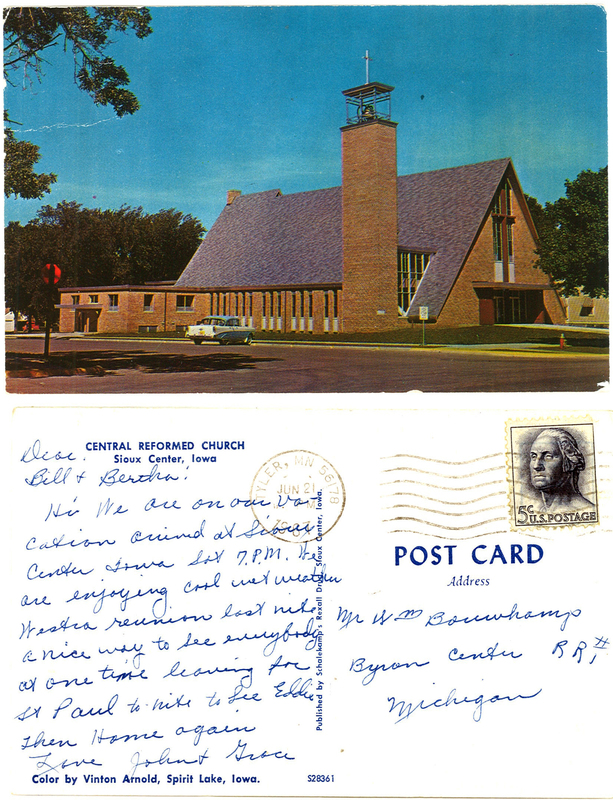 CENTRAL REFORMED CHURCH
Sioux Center, Iowa
Dear
Bill & Bertha!
Hi We are on our va-
cation arived at Sioux
Center Iowa Sat 7 P.M. We
are enjoying cool wet weather
Westra reunion last nite
a nice way to see everybody
at one time leaving for
St Paul to nite to See Eddie
then Home again
Love John & Grace
Color by Vinton Arnold, Spirit Lake, Iowa.
S28361
Published by Schalekamp's Rexall Drug, Sioux Center, Iowa.
TYLER, MN 56178
JUN 21
5c U.S. POSTAGE
POST CARD
Address
Mr Wm Bouwkamp
Byron Center R R, #1
Michigan